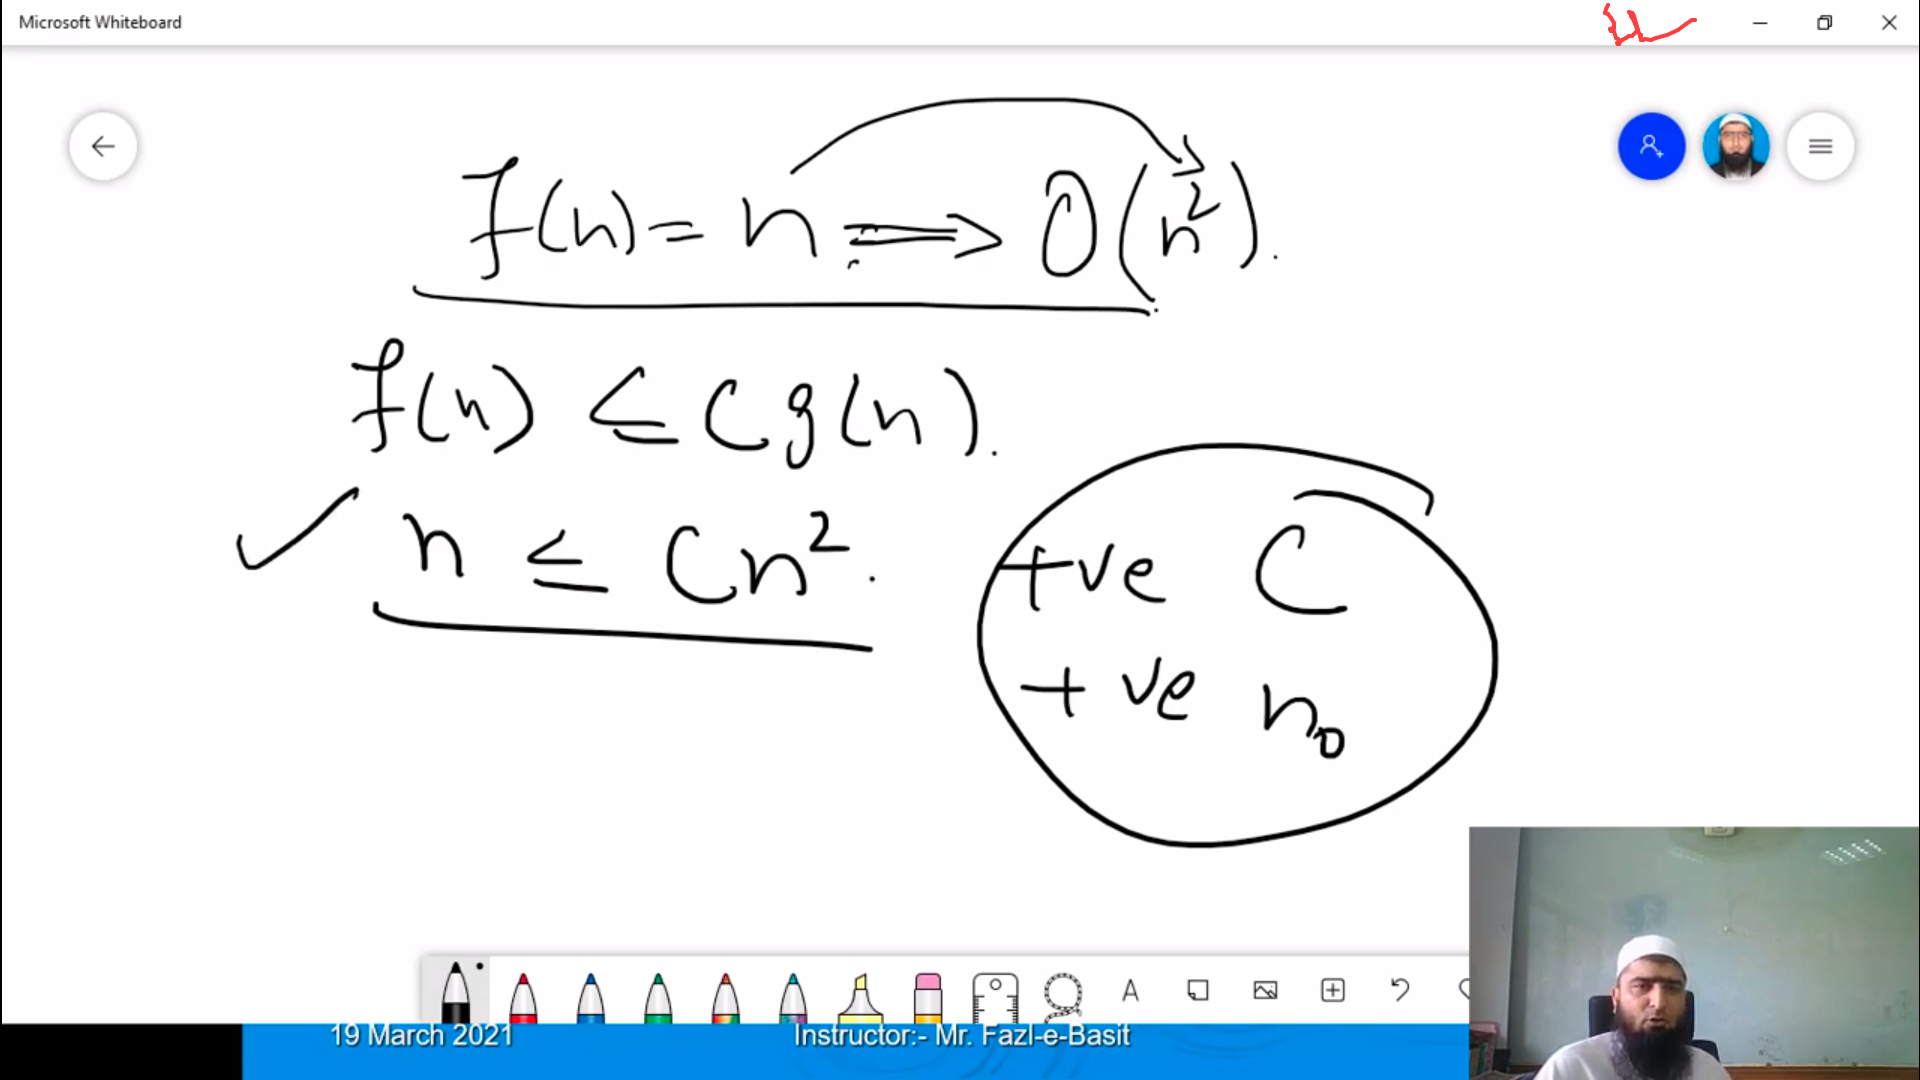 Microsoft Whiteboard
f(n) = n ⟹ O(n²).
f(n) ≤ C g(n).
n ≤ Cn².
+ve C
+ve n₀
19 March 2021
Instructor:- Mr. Fazl-e-Basit